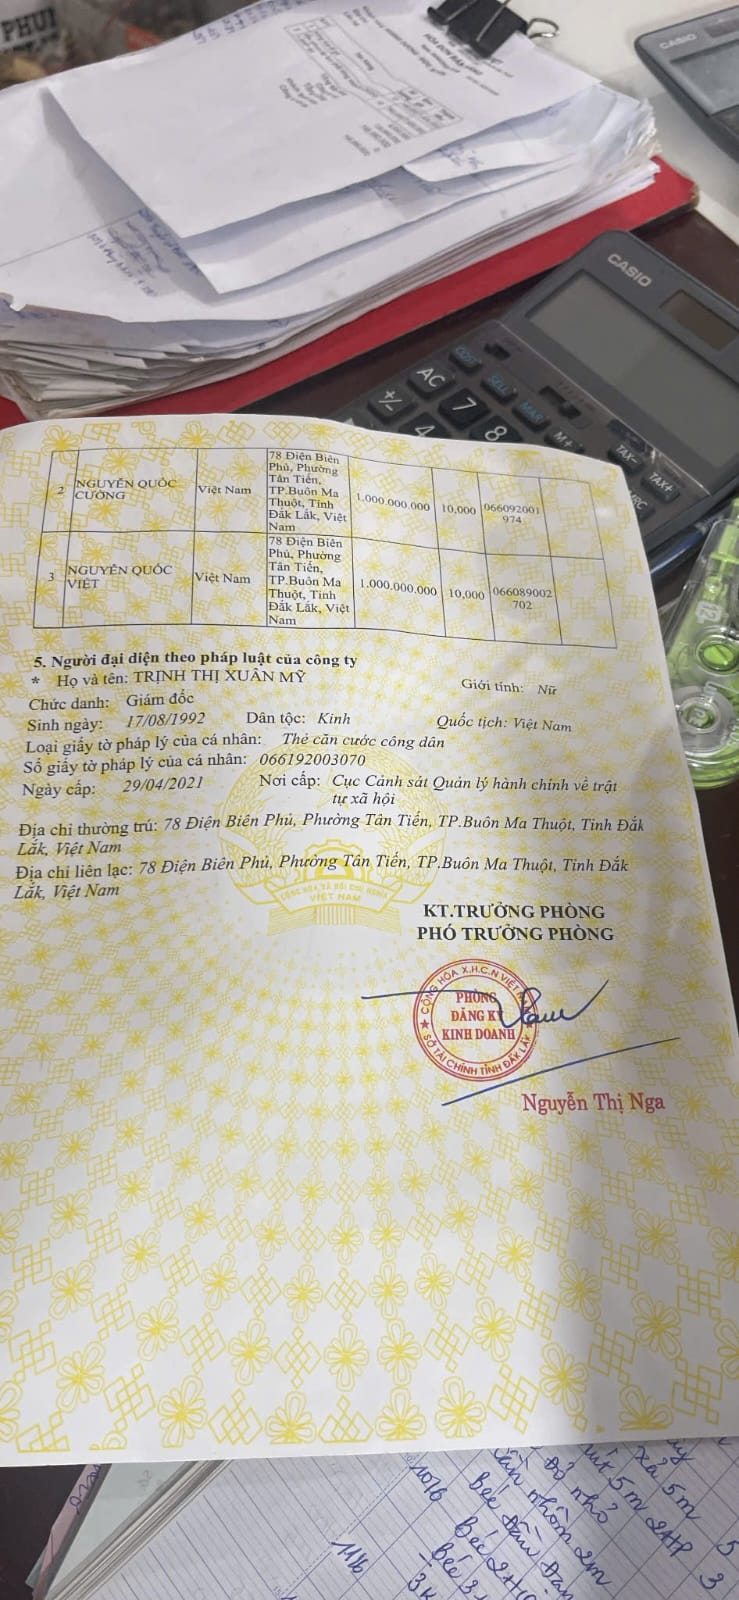 PHUI
CASIO
HÓA ĐƠN BÁN HÀNG
CASIO
COST
SELL
MAR
M+
TAX-
TAX+
AC
7
8
+/-
4
MRC
2
NGUYỄN QUỐC
CƯỜNG
Việt Nam
78 Điện Biên
Phủ, Phường
Tân Tiến,
TP.Buôn Ma
Thuột, Tỉnh
Đắk Lắk, Việt
Nam
1.000.000.000
10,000
066092001
974
3
NGUYỄN QUỐC
VIỆT
Việt Nam
78 Điện Biên
Phủ, Phường
Tân Tiến,
TP.Buôn Ma
Thuột, Tỉnh
Đắk Lắk, Việt
Nam
1.000.000.000
10,000
066089002
702
5. Người đại diện theo pháp luật của công ty
* Họ và tên: TRỊNH THỊ XUÂN MỸ Giới tính: Nữ
Chức danh: Giám đốc
Sinh ngày: 17/08/1992 Dân tộc: Kinh Quốc tịch: Việt Nam
Loại giấy tờ pháp lý của cá nhân: Thẻ căn cước công dân
Số giấy tờ pháp lý của cá nhân: 066192003070
Ngày cấp: 29/04/2021 Nơi cấp: Cục Cảnh sát Quản lý hành chính về trật
tự xã hội
Địa chỉ thường trú: 78 Điện Biên Phủ, Phường Tân Tiến, TP.Buôn Ma Thuột, Tỉnh Đắk
Lắk, Việt Nam
Địa chỉ liên lạc: 78 Điện Biên Phủ, Phường Tân Tiến, TP.Buôn Ma Thuột, Tỉnh Đắk
Lắk, Việt Nam
CỘNG HÒA XÃ HỘI CHỦ NGHĨA
VIỆT NAM
KT.TRƯỞNG PHÒNG
PHÓ TRƯỞNG PHÒNG
CỘNG HÒA X.H.C.N VIỆT NAM
PHÒNG
ĐĂNG KÝ
KINH DOANH
SỞ TÀI CHÍNH TỈNH ĐẮK LẮK
Nguyễn Thị Nga
xả 5m 5
5m 2HP 3
đỏ nhỏ
nhôm 2m
10/6
Béc
Béc 2HP
11/6
Béc 3